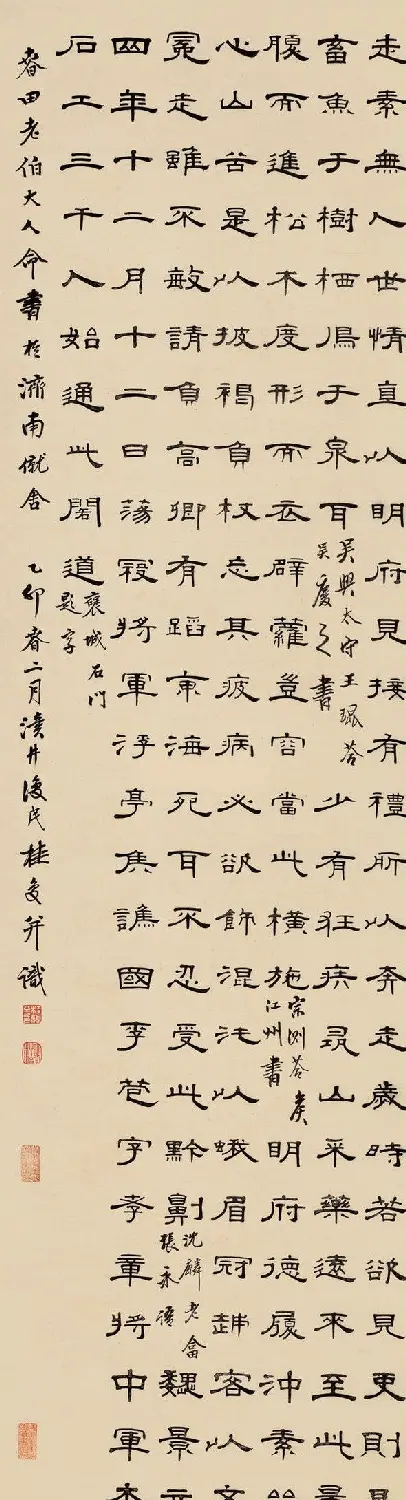 走素無人世情直以明府見接有禮所以奔走歲時若欲見吏則
畜魚于樹栖鳥于泉耳 吳興太守王琨荅吳慶之書 少有狂疾尋山采藥遠來至此
腹而進松木度形而衣薜蘿豈容當此橫施 宗測荅矦江州書 明府德履沖素
心山谷是以披褐負杖忘其疲病必欲飾混沌以蛾眉冠越客以文
冕走雖不敏請負高卿有蹈東海死耳不忍受此黔劓 沈麟士荅張永語 魏景元
四年十二月十二日蕩寇將軍浮亭矦譙國李苞字孝章將中軍
石工三千人始通此閣道 襃城石門題字
春田老伯大人命書於濟南僦舍 乙卯春二月瀆井復民桂馥并識